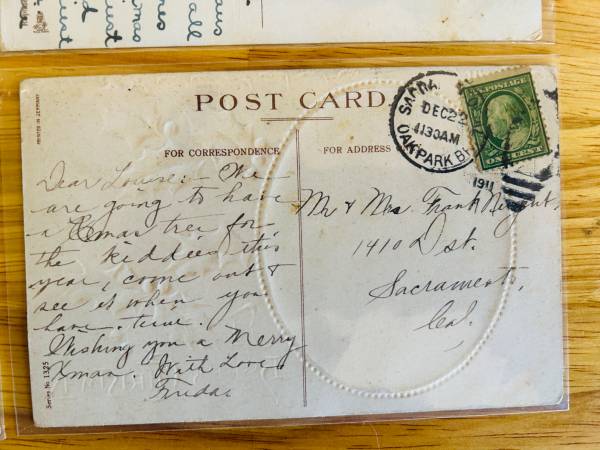 aus
all
mas
res
ust
d
ust
PRINTED IN GERMANY
POST CARD
FOR CORRESPONDENCE
FOR ADDRESS
DEC 22
1130AM
OAK PARK
1911
U.S. POSTAGE
ONE CENT
Dear Louise:- We
are going to have
a Xmas tree for
the kiddies this
year, come out &
see it when you
have time.
Wishing you a Merry
Xmas. With Love
Frieda.
Series No 1325
Mr & Mrs. Frank
1410 D st.
Sacramento,
Cal.